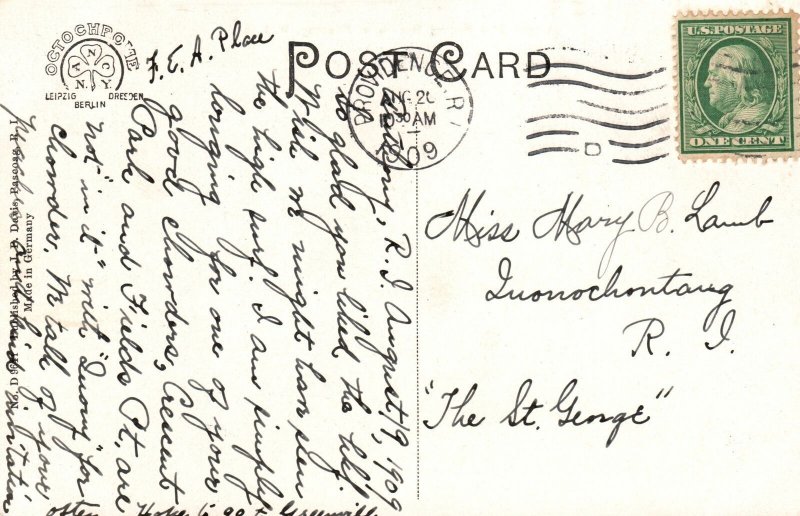 OCTOCHROME
A N C
N. Y.
LEIPZIG DRESDEN
BERLIN
F. E. A. Place
POST CARD
PROVIDENCE, R.I.
AUG 20
10 30 AM
1909
U.S. POSTAGE
ONE CENT
R. I. August, 19, 1909
so glad you liked the half.
Wish we might have seen
the high surf. I am simply
longing for one of your
good chowders, Crescent
Park and Fields Pt. are
not "in it" with "Quony" for
chowder. We talk of your
invitation
often. Hope to go to Greenville
Miss Mary B. Lamb
Quonochontaug
R. I.
"The St. George"
No. D Published by J. B. Davis, Pascoag, R. I.
Made in Germany